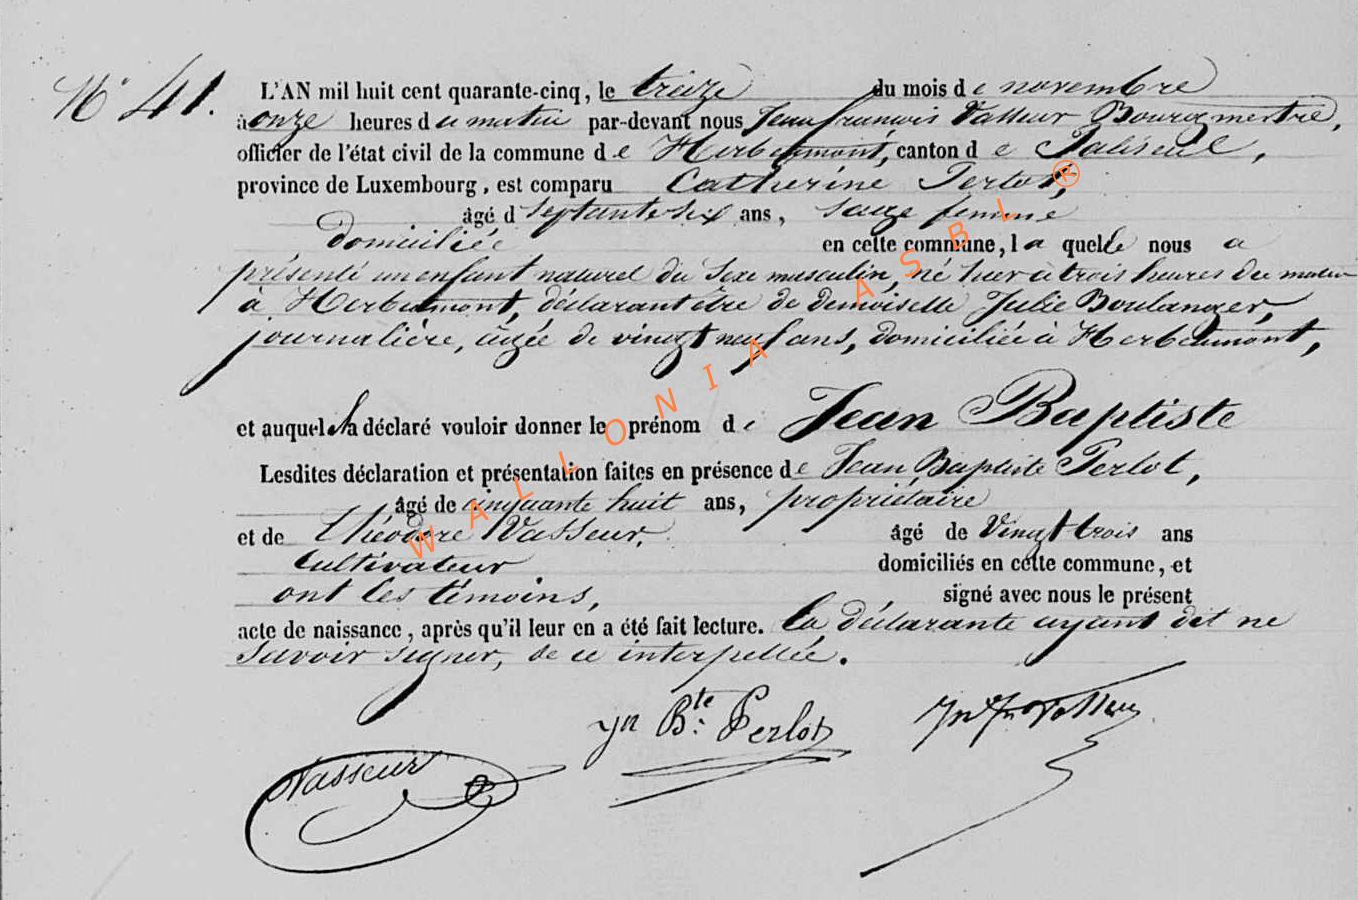 N° 41.
L'AN mil huit cent quarante-cinq, le treize du mois de novembre
à onze heures du matin par-devant nous Jean françois Vasseur Bourgmestre,
officier de l'état civil de la commune de Herbeumont, canton de Paliseul,
province de Luxembourg, est comparu Catherine Perlot,
âgé d septante six ans, sage femme
domiciliée en cette commune, la quelle nous a
présenté un enfant naturel du sexe masculin, né hier à trois heures du matin
à Herbeumont, déclarant être de demoiselle Julie Boulanger,
journalière, âgée de vingt neuf ans, domiciliée à Herbeumont,
et auquel a déclaré vouloir donner le prénom de Jean Baptiste
Lesdites déclaration et présentation faites en présence de Jean Baptiste Perlot,
âgé de cinquante huit ans, propriétaire
et de Théodore Vasseur, âgé de Vingt trois ans
Cultivateur domiciliés en cette commune, et
ont les témoins, signé avec nous le présent
acte de naissance, après qu'il leur en a été fait lecture. La déclarante ayant dit ne
savoir signer, de ce interpellée.
Jn Bte: Perlot
Vasseur
WALLONIA ASBL ®